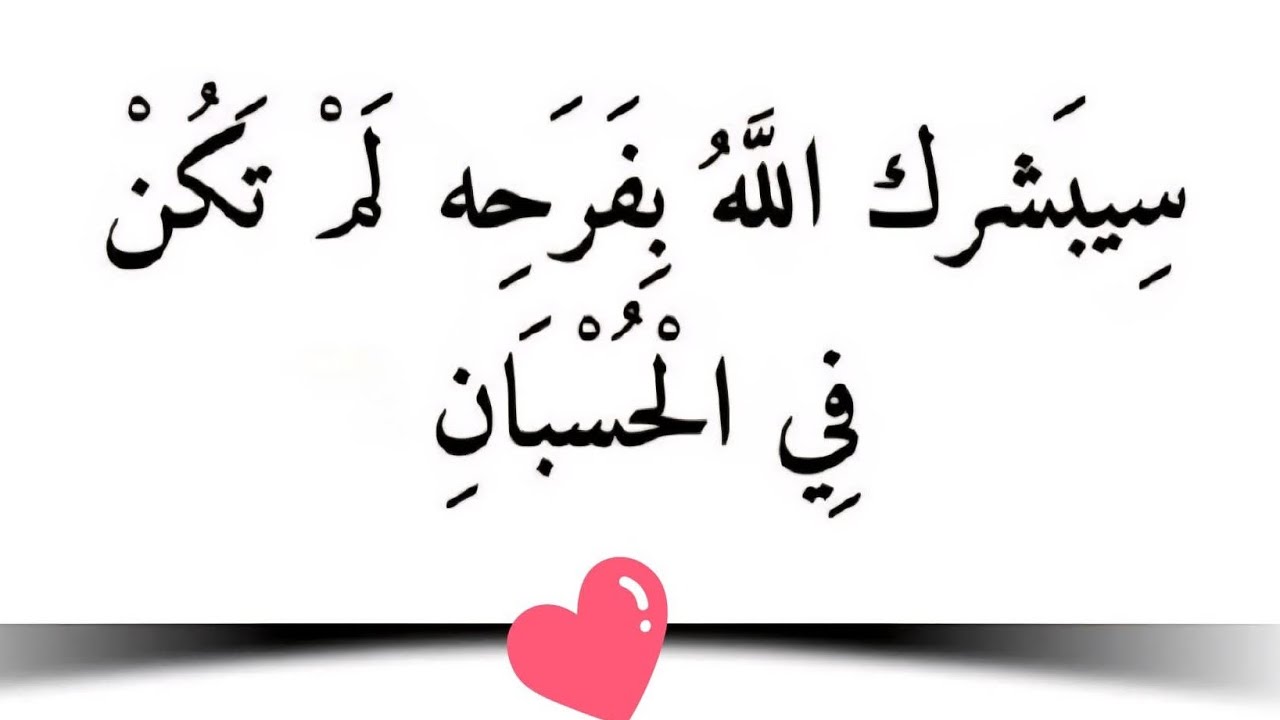 سِيبَشرك اللَّهُ بِفَرَحِه لَمْ تَكُنْ
فِي الْحُسْبَانِ